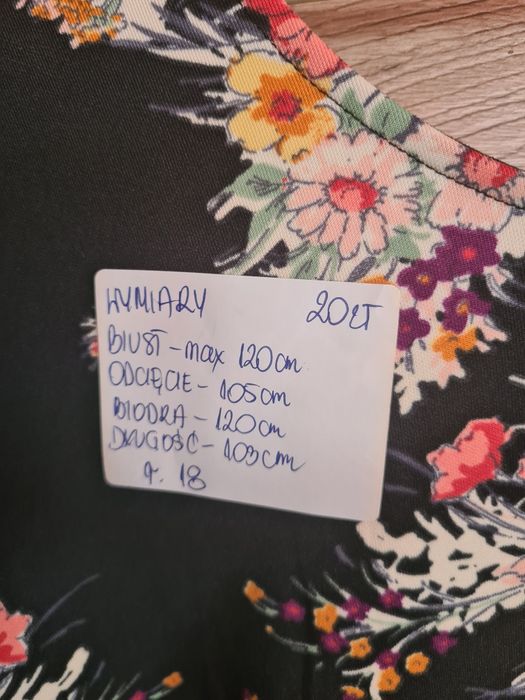 WYMIARY 20 zł
BIUST - max 120 cm
ODCIĘCIE - 105 cm
BIODRA - 120 cm
DŁUGOŚĆ - 103 cm
r. 18